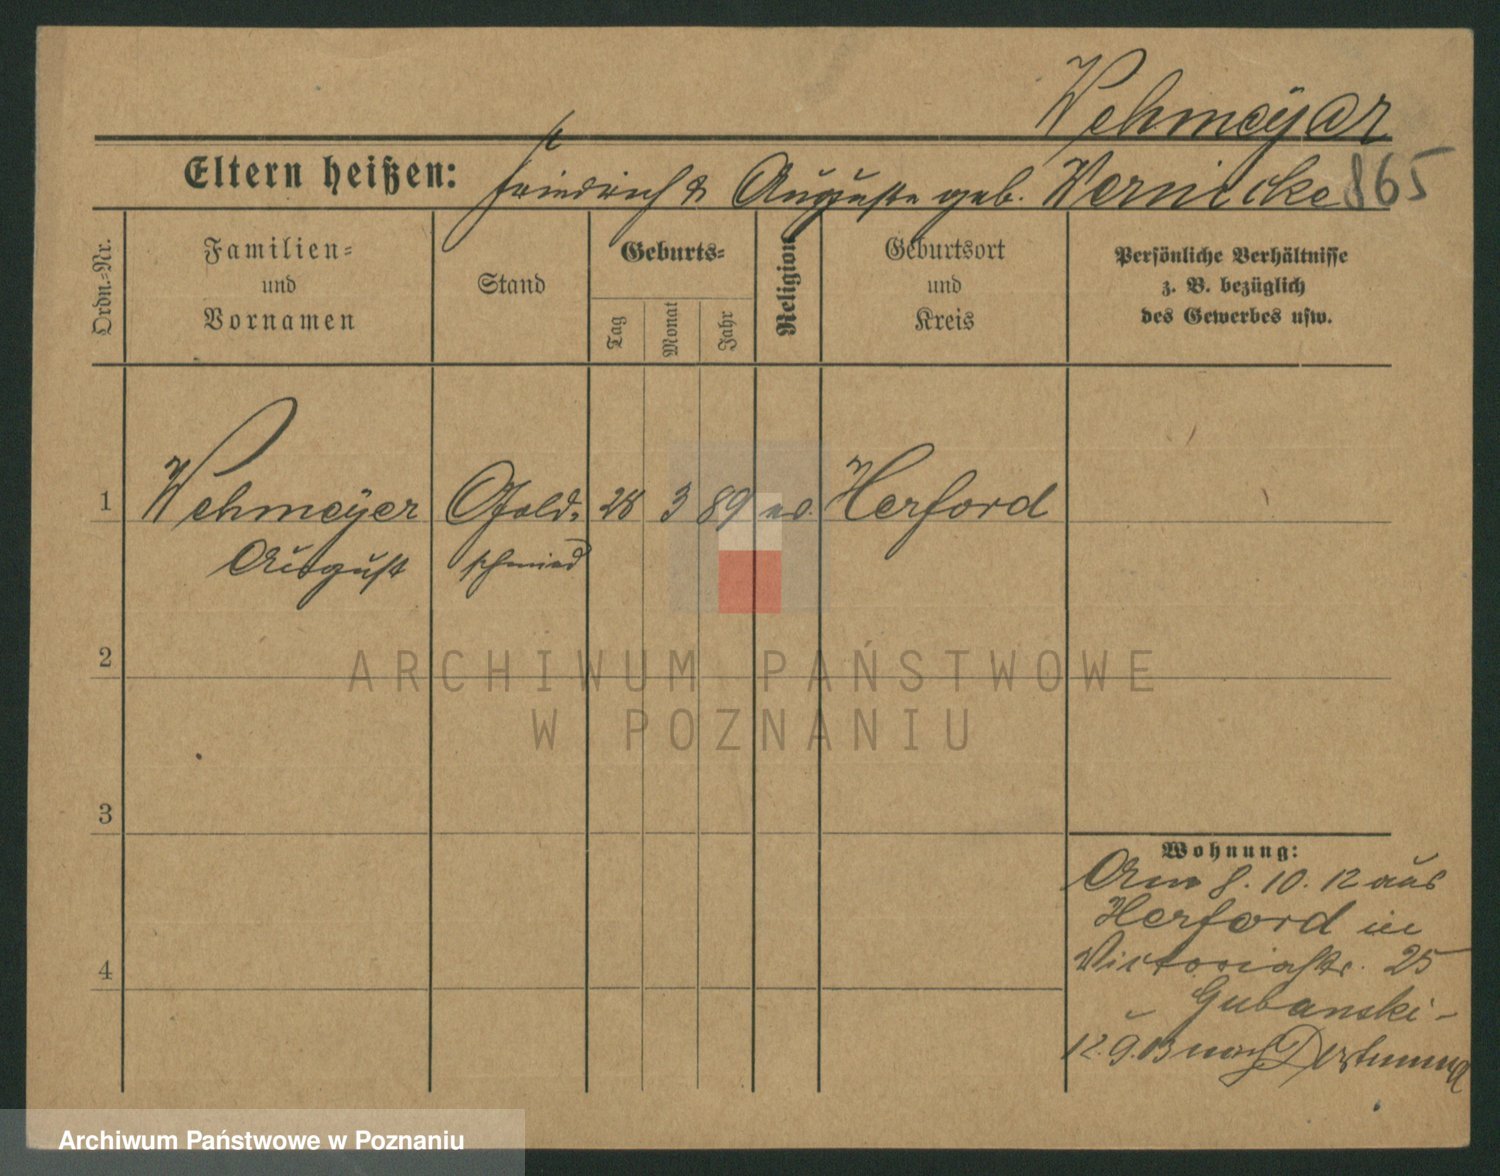 Wehmeyer
Eltern heißen: Friedrich & Auguste geb. Wernicke 865
Ordn.-Nr.
Familien-
und
Vornamen
Stand
Geburts-
Tag
Monat
Jahr
Religion
Geburtsort
und
Kreis
Persönliche Verhältnisse
z. B. bezüglich
des Gewerbes usw.
1 Wehmeyer Gold- 28 3 89 ev. Herford
August schmied
2
3
4
Wohnung:
Am 8. 10. 12 aus
Herford in
Victoriastr. 25
Gubanski-
12. 9. 13 nach Dortmund
ARCHIWUM PAŃSTWOWE
W POZNANIU
Archiwum Państwowe w Poznaniu